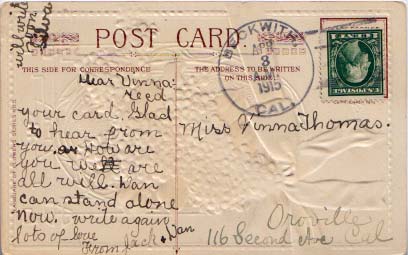 will write
soon
POST CARD.
THIS SIDE FOR CORRESPONDENCE
THE ADDRESS TO BE WRITTEN
ON THIS SIDE.
BECKWITH
APR
8
1915
CAL.
Dear Vinna-
recd
your card. Glad
to hear from
you. How are
you we are
all will. Dan
can stand alone
now. write again
lots of love
From Jack + Dan
Miss Vinna Thomas.
Oroville
116 Second Ave Cal